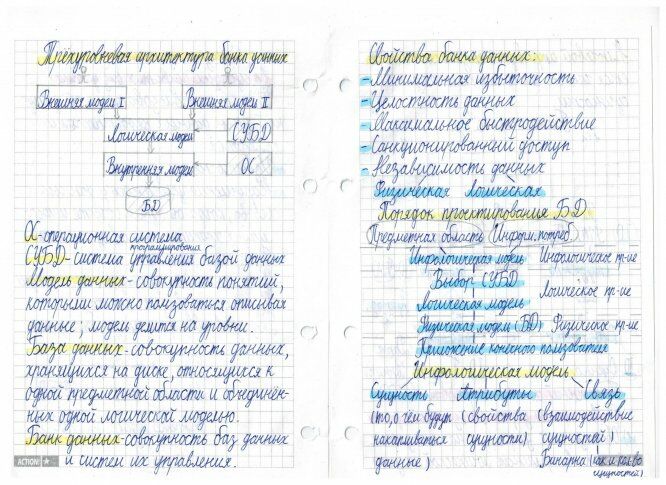 Трёхуровневая архитектура банка данных
Внешняя модель I
Внешняя модель II
Логическая модель
СУБД
Внутренняя модель
ОС
БД
ОС-операционная система
программирования
СУБД-система управления базой данных
Модель данных-совокупность понятий,
которыми можно пользоваться описывая
данные; модели делится на уровни.
База данных-совокупность данных,
хранящихся на диске, относящихся к
одной предметной области и объединён-
ных одной логической моделью.
Банк данных-совокупность баз данных
и систем их управления.
ACTION!
Свойства банка данных:
-Минимальная избыточность
-Целостность данных
-Максимальное быстродействие
-Санкционированный доступ
-Независимость данных
Физическая Логическая
Порядок проектирования БД
Предметная область (Информ. потреб)
Инфологическая модель Инфологическое пр-ие
Выбор СУБД
Логическая модель Логическое пр-ие
Физическая модель (БД) Физическое пр-ие
Приложение конечного пользователя
Инфологическая модель
Сущность Атрибуты Связь
(то, о чём будут (свойства (взаимодействие
накапливаться сущности) сущностей)
данные) Бинарна (как и кол-во
сущностей)